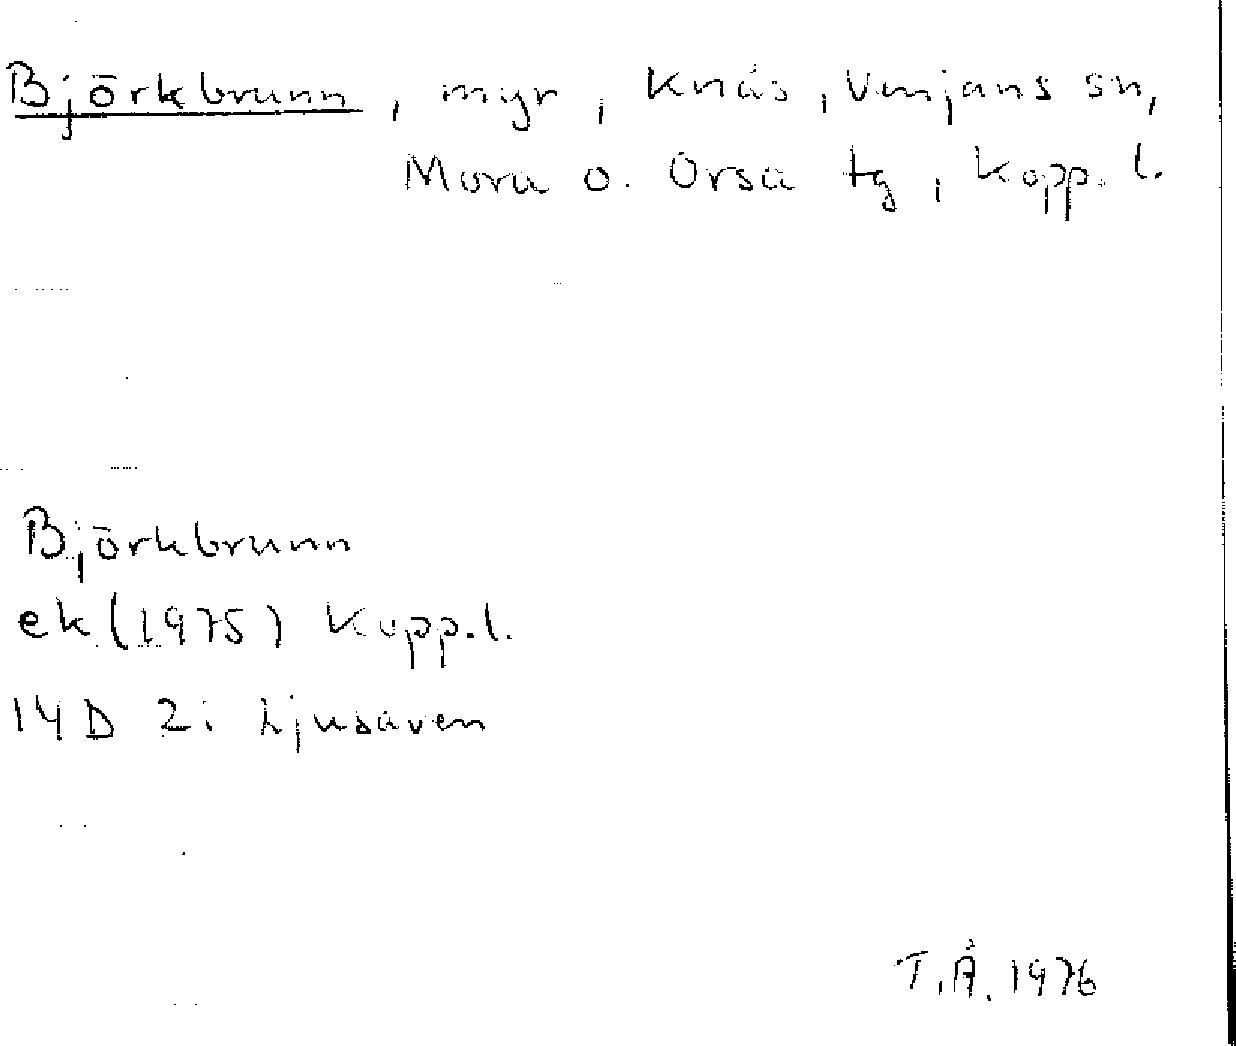 Björkbrunn, myr, Knås, Venjans sn,
Mora o. Orsa tg, Kopp. l.
Björkbrunn
ek (1975) Kopp. l.
14D 2i Ljusaven
T.Å. 1976